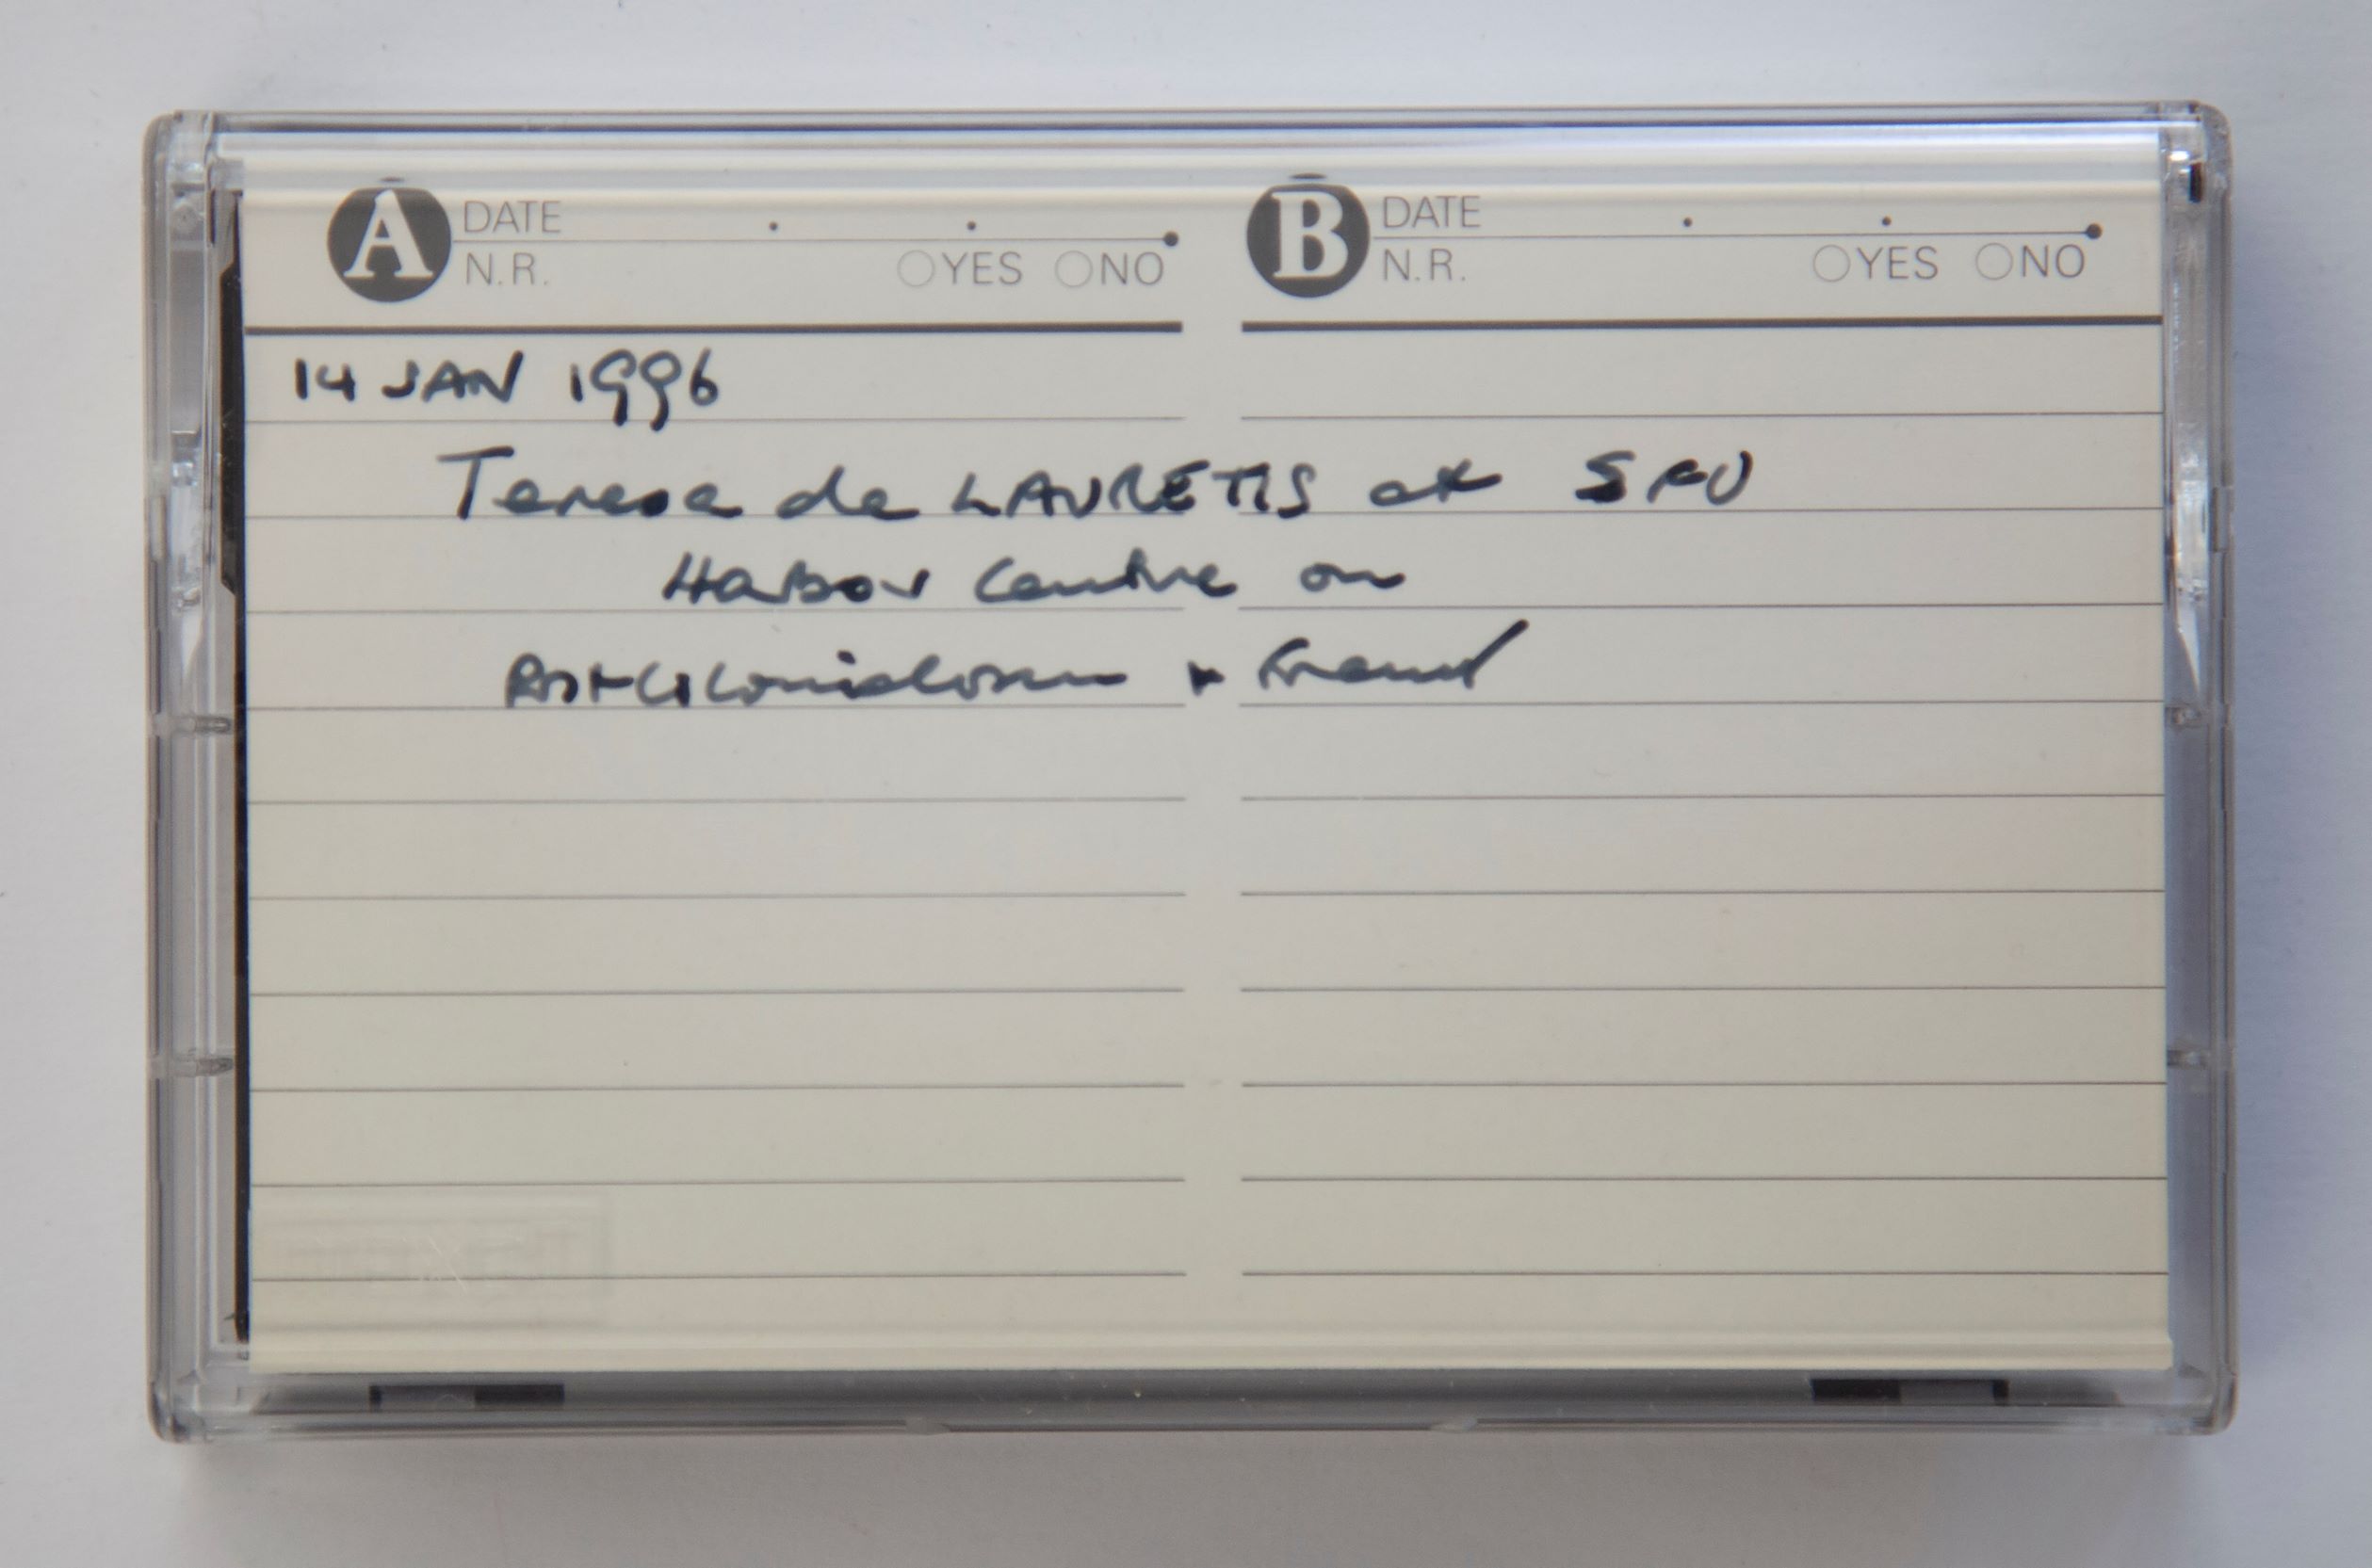 A DATE B DATE
N.R. YES NO N.R. YES NO
14 JAN 1996
Teresa de LAURETIS at SFU
Harbor Centre on
Postcolonialism + Freud